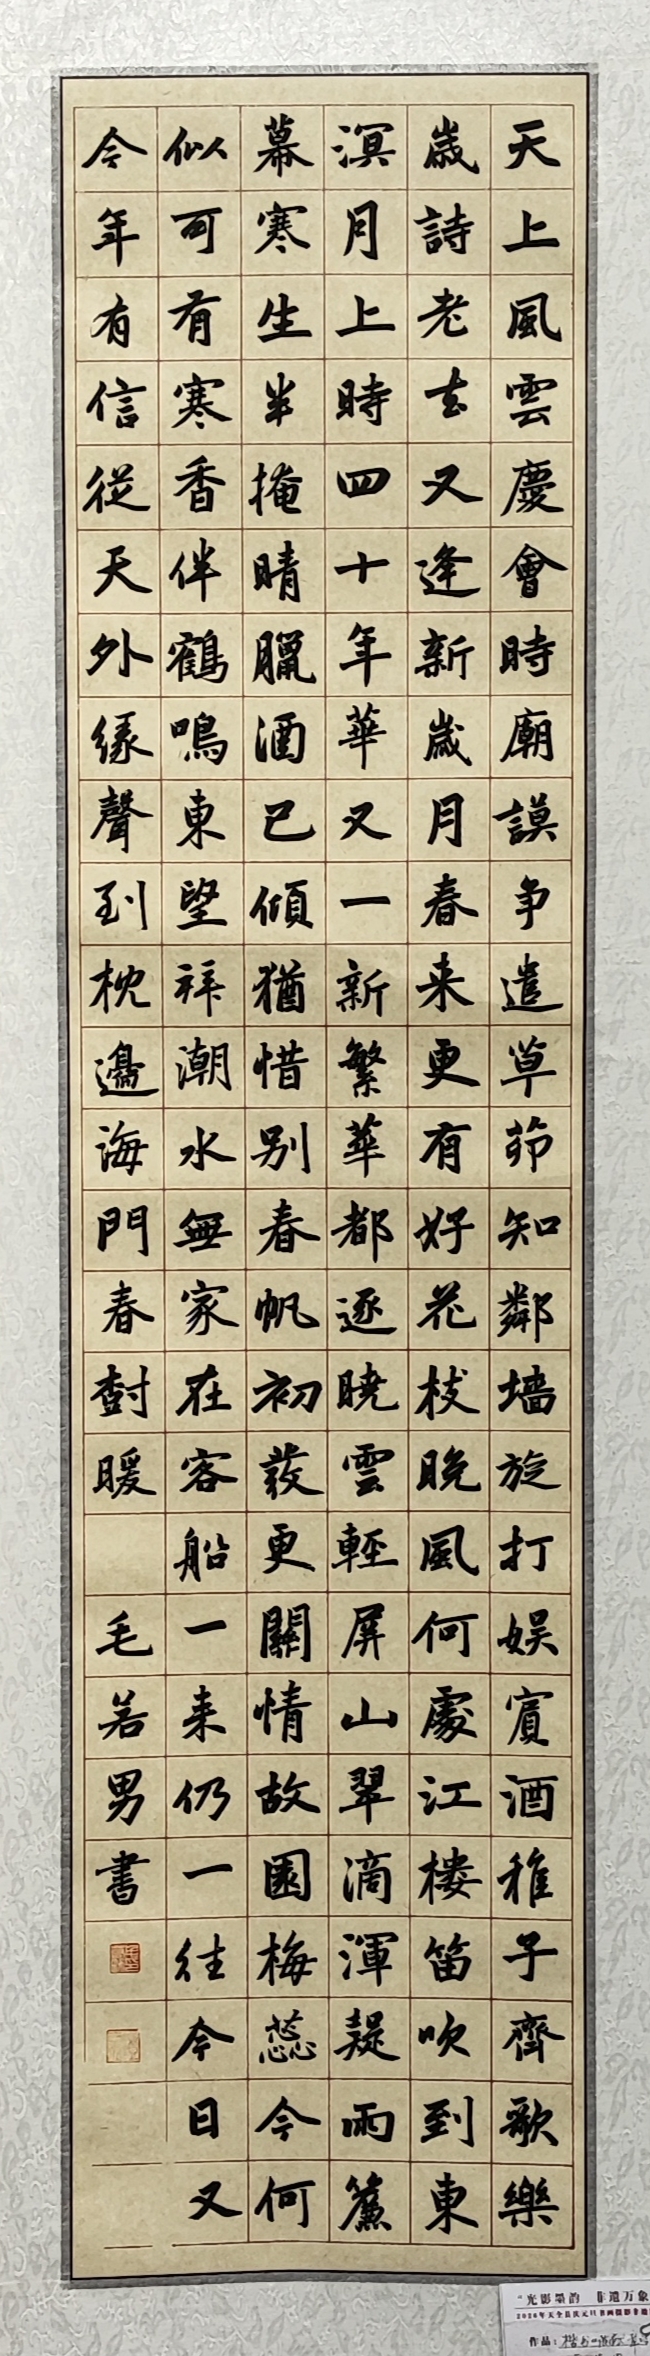 天上風雲慶會時廟謨争遣草茆知鄰墙旋打娱賓酒稚子齊歌樂
歲詩老去又逢新歲月春来更有好花枝晚風何處江樓笛吹到東
溟月上時四十年華又一新繁華都逐曉雲輕屏山翠滴渾疑雨簾
幕寒生半掩晴臘酒已傾猶惜别春帆初發更關情故園梅蕊今何
似可有寒香伴鶴鳴東望拜潮水無家在客船一来仍一往今日又
今年有信從天外緣聲到枕邊海門春樹暖
毛若男書
"光影墨韵 非遗万象
2026年天全县庆元旦书画摄影非遗
作品：楷书